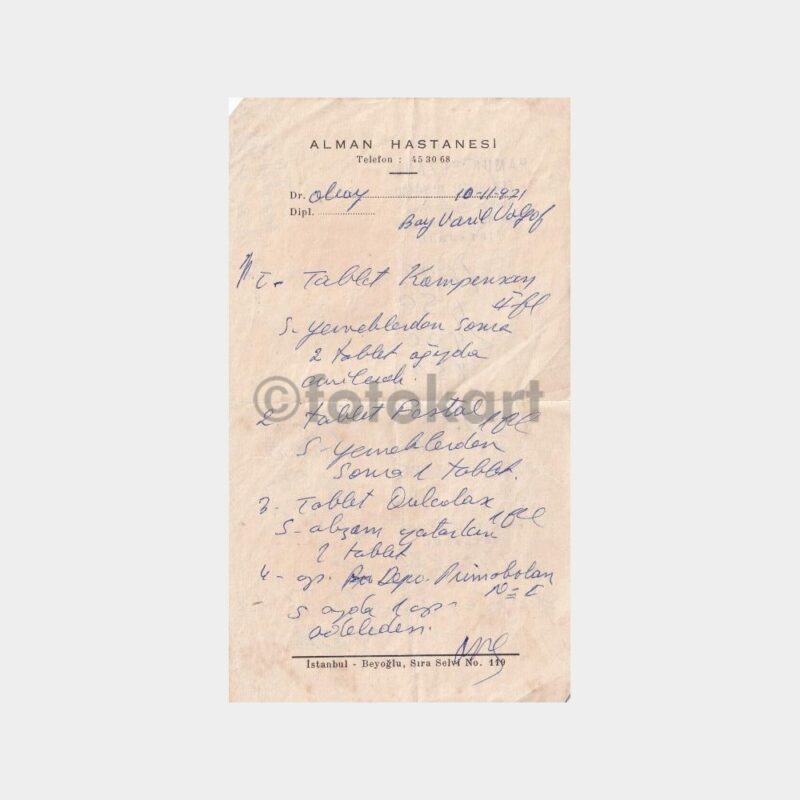 ALMAN HASTANESİ
Telefon : 45 30 68
Dr. Olcay 10-11-
Dipl.
Bay Vasil
1- Tablet Kompensan
S- yemeklerden sonra
2 tablet ağızda
©fotokart
2 Tablet Festal 1 fl
S- yemeklerden
sonra 1 tablet.
3- Tablet Dulcolax
1 fl
S- akşam yatarken
tablet
4- Depo. Primobolan
S ayda 1
İstanbul - Beyoğlu, Sıra Selvi No. 119